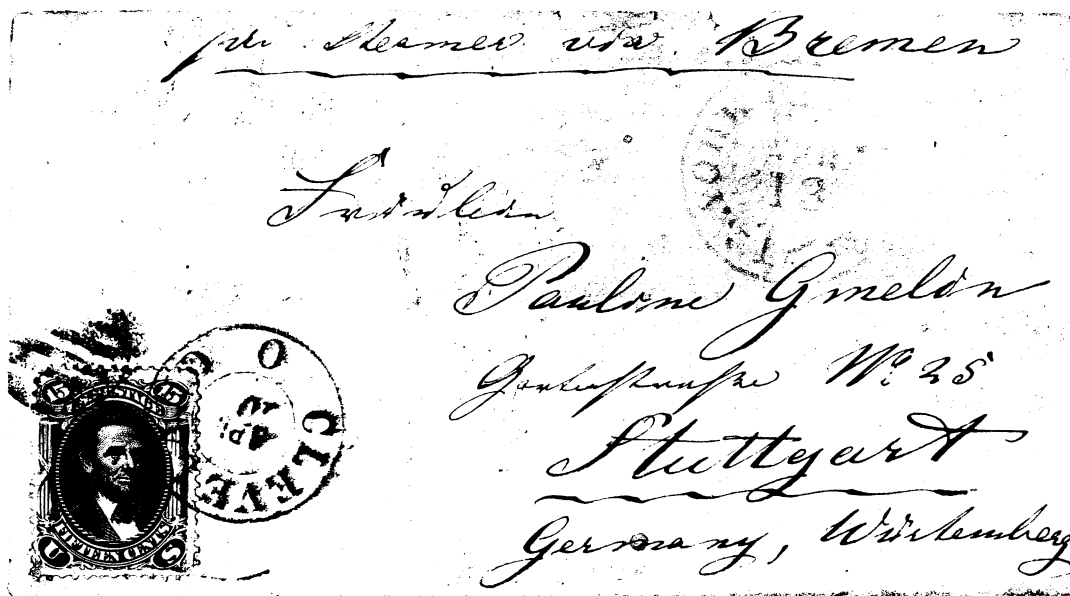 pr. Steamer via. Bremen
Fräulein
Pauline Gmelin
Gartenstraße No. 25
Stuttgart
Germany, Würtemberg
CLEVE O
APR
U.S. POSTAGE
15 15
FIFTEEN CENTS
U S